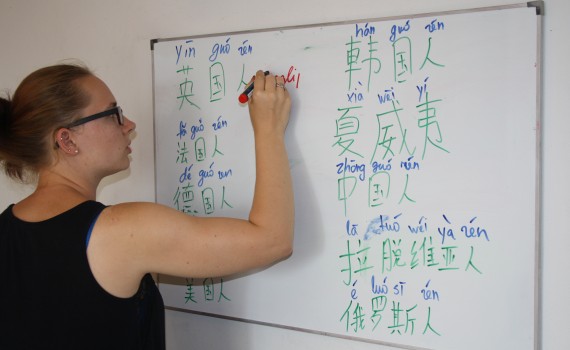 yīn guó rén
英国人
fǎ guó rén
法国人
dé guó rén
德国人
美国人
hán guó rén
韩国人
xià wēi yí
夏威夷
zhōng guó rén
中国人
lā tuó wéi yà rén
拉脱维亚人
é luó sī rén
俄罗斯人